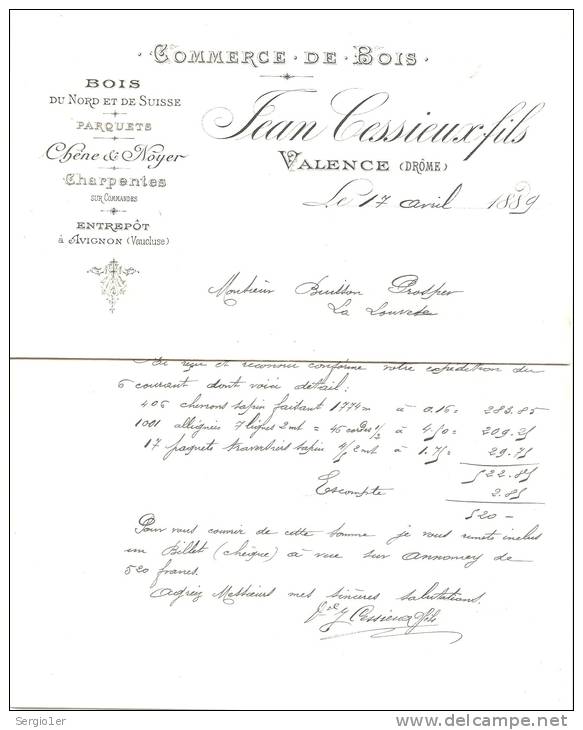 COMMERCE · DE · BOIS
BOIS
DU NORD ET DE SUISSE
PARQUETS
Chêne & Noyer
Charpentes
SUR COMMANDES
ENTREPÔT
à AVIGNON (Vaucluse)
Jean Cessieux fils
VALENCE (DRÔME)
Le 17 avril 1889
Monsieur Buisson Prosper
La Louvesc
reçu et reconnu conforme votre expédition du
6 courant dont voici détail:
406 chevrons sapin faisant 1774m à 0.16 = 283.85
1001 7 lignes 2mt = 46 à 4.50 = 209.25
17 paquets sapin 2mt à 1.75 = 29.75
522.85
Escompte 2.85
520 –
Pour vous couvrir de cette somme je vous remets inclus
un Billet (chèque) à vue sur Annonay de
520 francs.
Agréez Messieurs mes sincères salutations.
J Cessieux fils
Sergio1er
delcampe.net